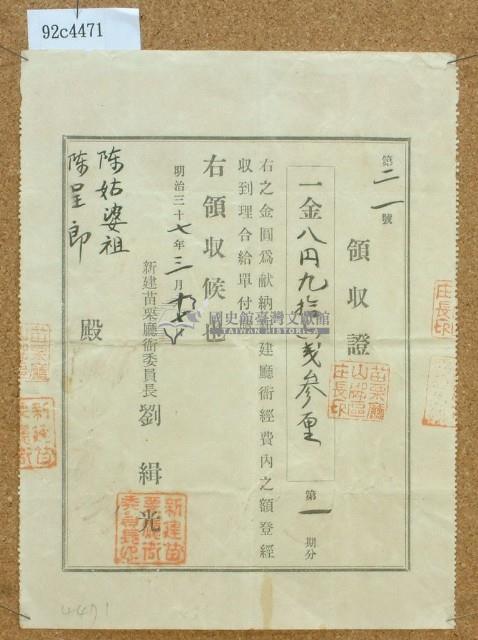 92c4471
第二一號
領收證
一金八円九拾戔參厘
第一期分
右之金圓爲献納新建廳衙經費內之額登經
收到理合給單付
右領收候也
明治三十七年三月
新建苗栗廳衙委員長 劉緝光
陈姑婆祖
陈呈郎
殿
國史館臺灣文獻館
TAIWAN HISTORICA
庄長印
4471